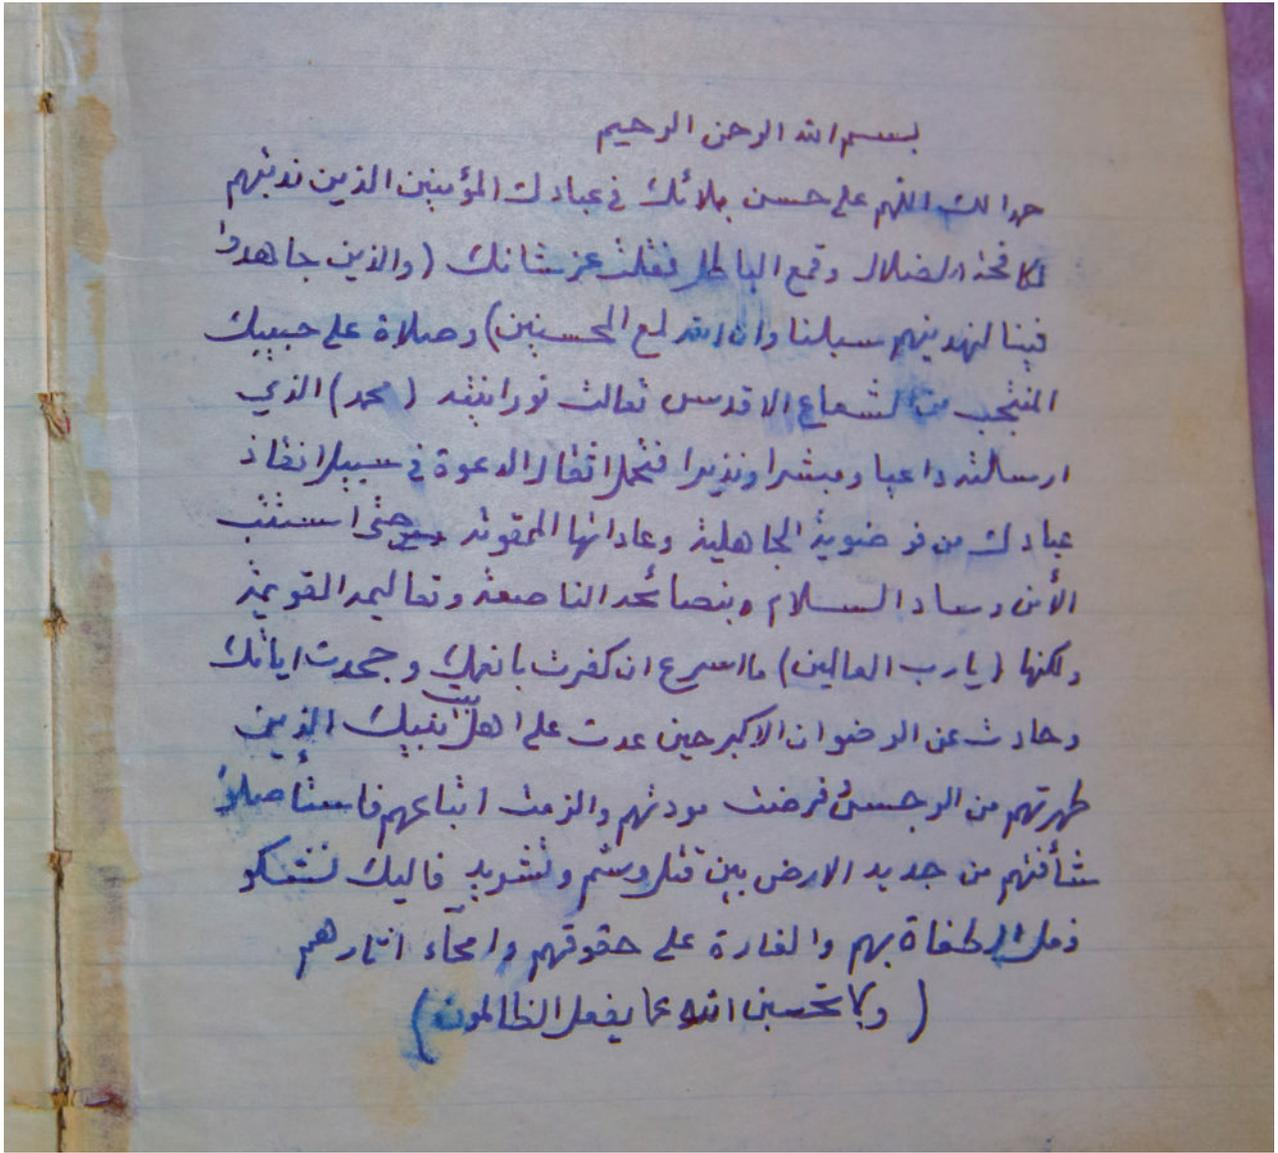 بسم الله الرحمن الرحيم
حمدا لك اللهم على حسن بلائك في عبادك المؤمنين الذين ندبتهم
لمكافحة الضلال وقمع الباطل فقلت عز شانك (والذين جاهدوا
فينا لنهدينهم سبلنا وان الله لمع المحسنين) وصلاة على حبيبك
المنتجب من الشعاع الاقدس تعاليت نورانيته (محمد) الذي
ارسلته داعيا ومبشرا ونذيرا فتحمل اثقال الدعوة في سبيل انقاذ
عبادك من فوضوية الجاهلية وعاداتها الممقوتة حتى استتب
الأمن وساد السلام وبنصائحه الناصعة وتعاليمه القويمة
ولكنها (يارب العالمين) ما اسرع ان كفرت بانعمك وجحدت اياتك
وحادت عن الرضوان الاكبر حين عدت على اهل بيت نبيك الذين
طهرتهم من الرجس وفرضت مودتهم والزمت اتباعهم فاستأصلوا
شأفتهم من جديد الارض بين قتل وسم وتشريد فاليك نشكو
الطغاة بهم والغارة على حقوقهم وامحآء اثارهم
(ولا تحسبن الله عما يفعل الظالمون)